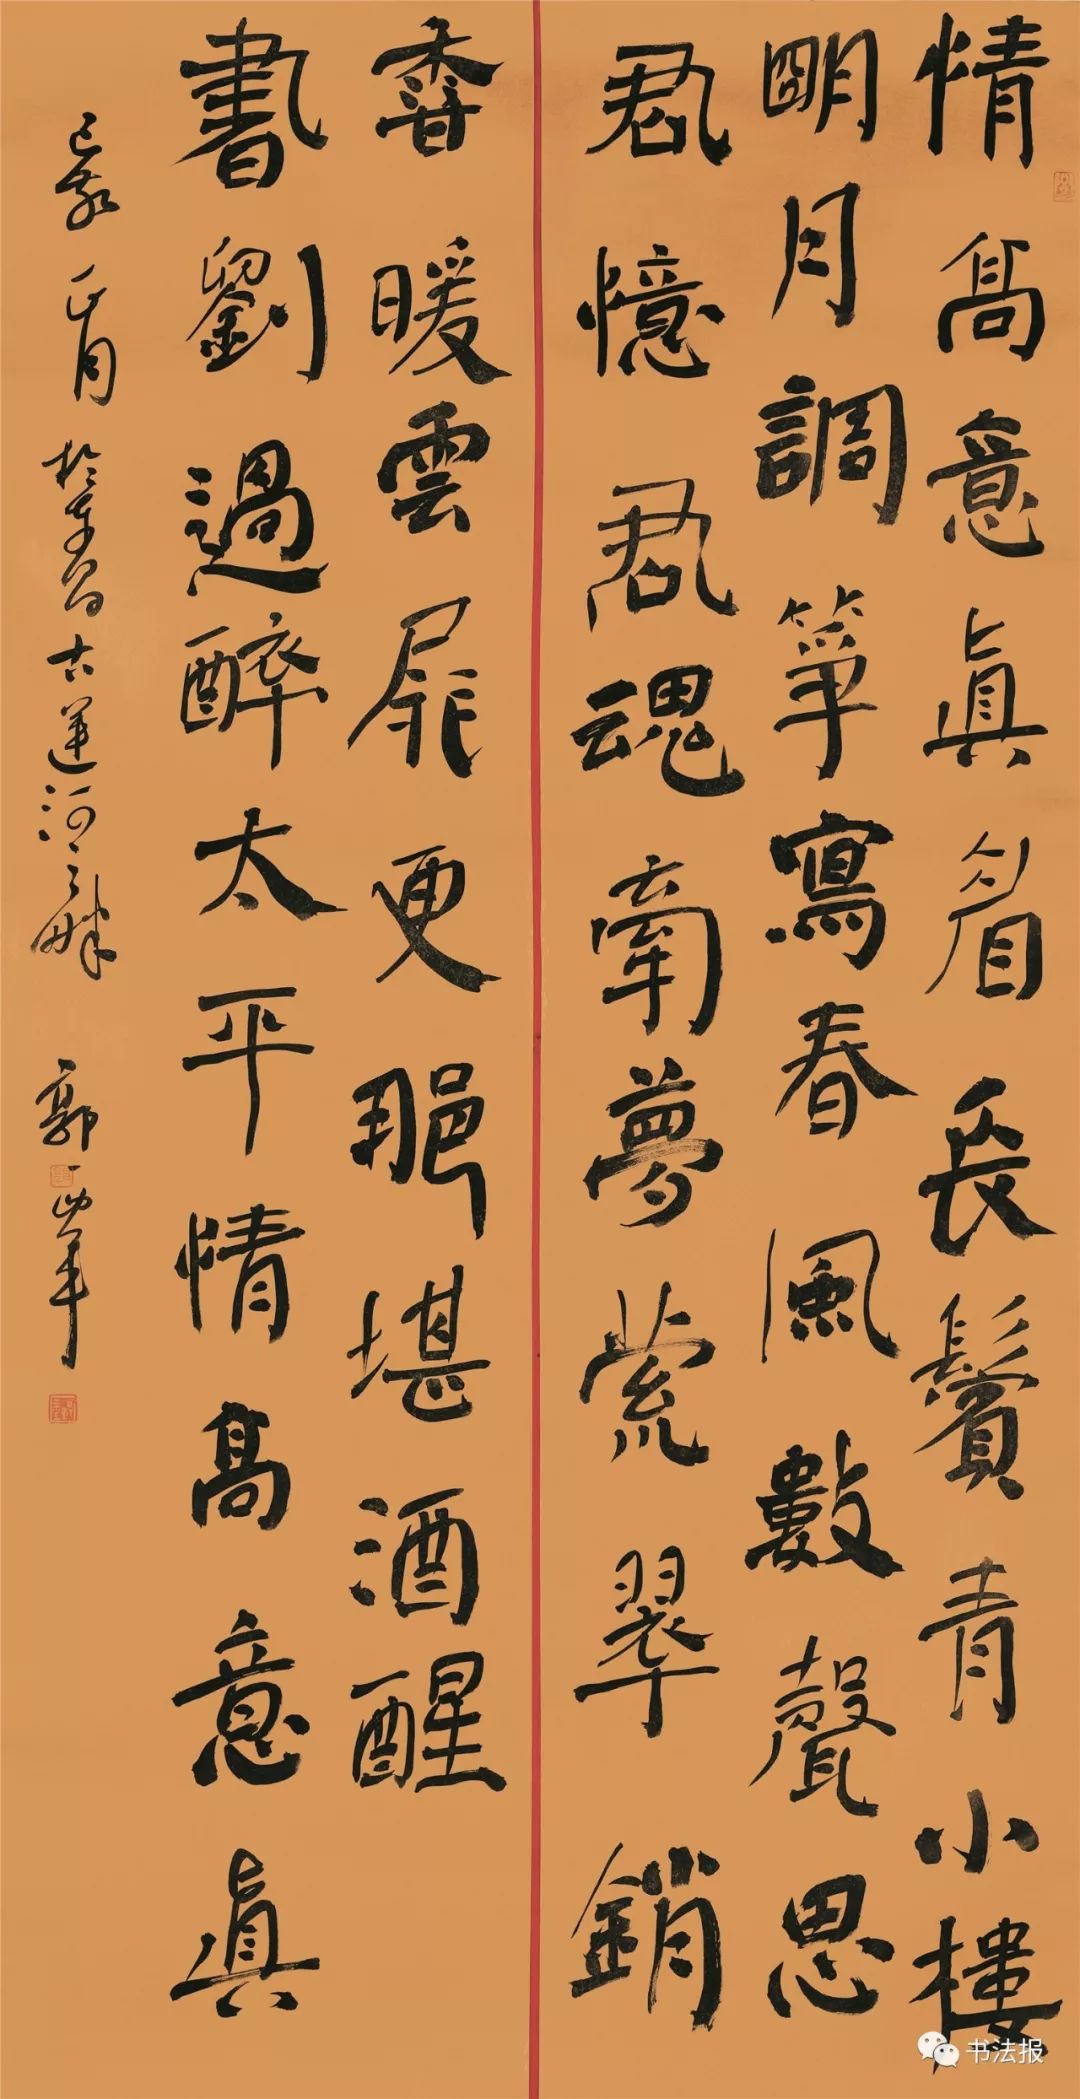 情高意真眉長鬢青小樓
明月調箏寫春風數聲思
君憶君魂牽夢縈翠銷
香暖雲屏更那堪酒醒
書劉過醉太平情高意真
己亥正月於東昌古運河之畔 郭
书法报